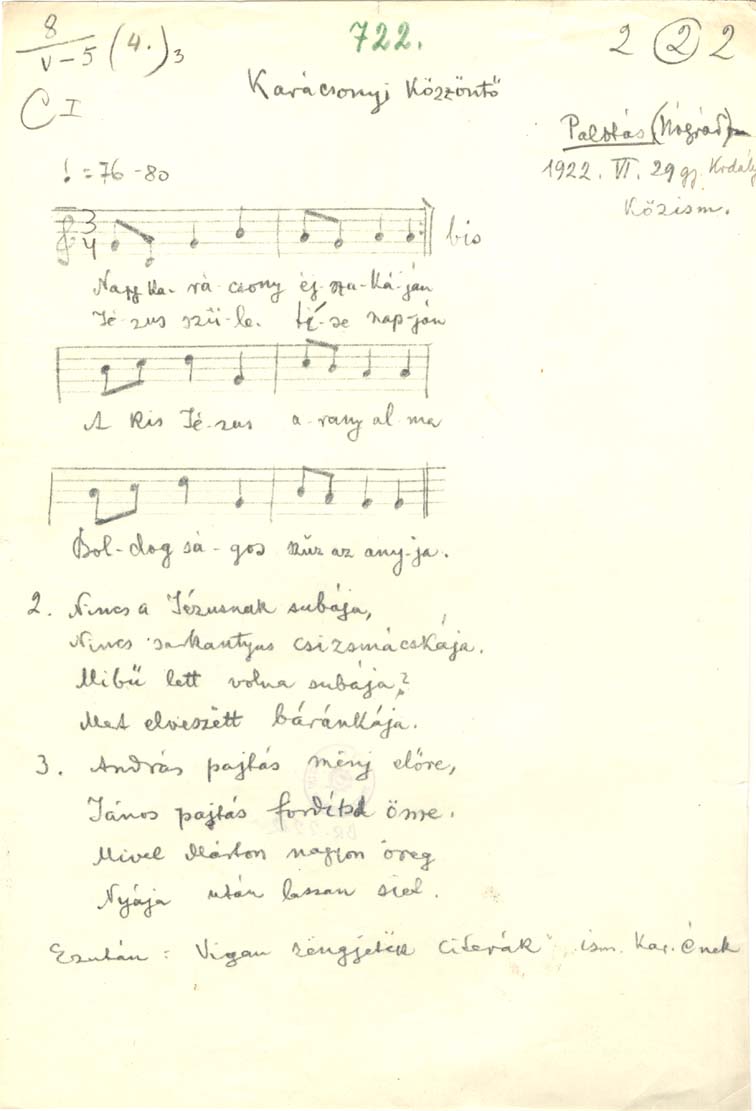 8
V-5 (4.) 3
722.
2 2 2
C I
Karácsonyi Köszöntő
Palotás (Nógrád)
1922. VI. 29 gy. Kodály
Közism.
= 76 - 80
3
4
bis
Nagy Ka- rá- csony éj- sza- ká- ján
Jé- zus szü- le- té- se nap- ján
A Kis Jé- zus a- rany al- ma
Bol- dog sá- gos szűz az any- ja.
2. Nincs a Jézusnak subája,
Nincs sarkantyus csizsmácskája.
Mibű lett volna subája?
Met elveszëtt báránkája.
3. András pajtás mënj előre,
János pajtás fordítsd össe.
Mivel Márton nagyon öreg
Nyája után lassan siet.
Ezután: Vigan zëngjetëk citerák" ism. Kar. ének